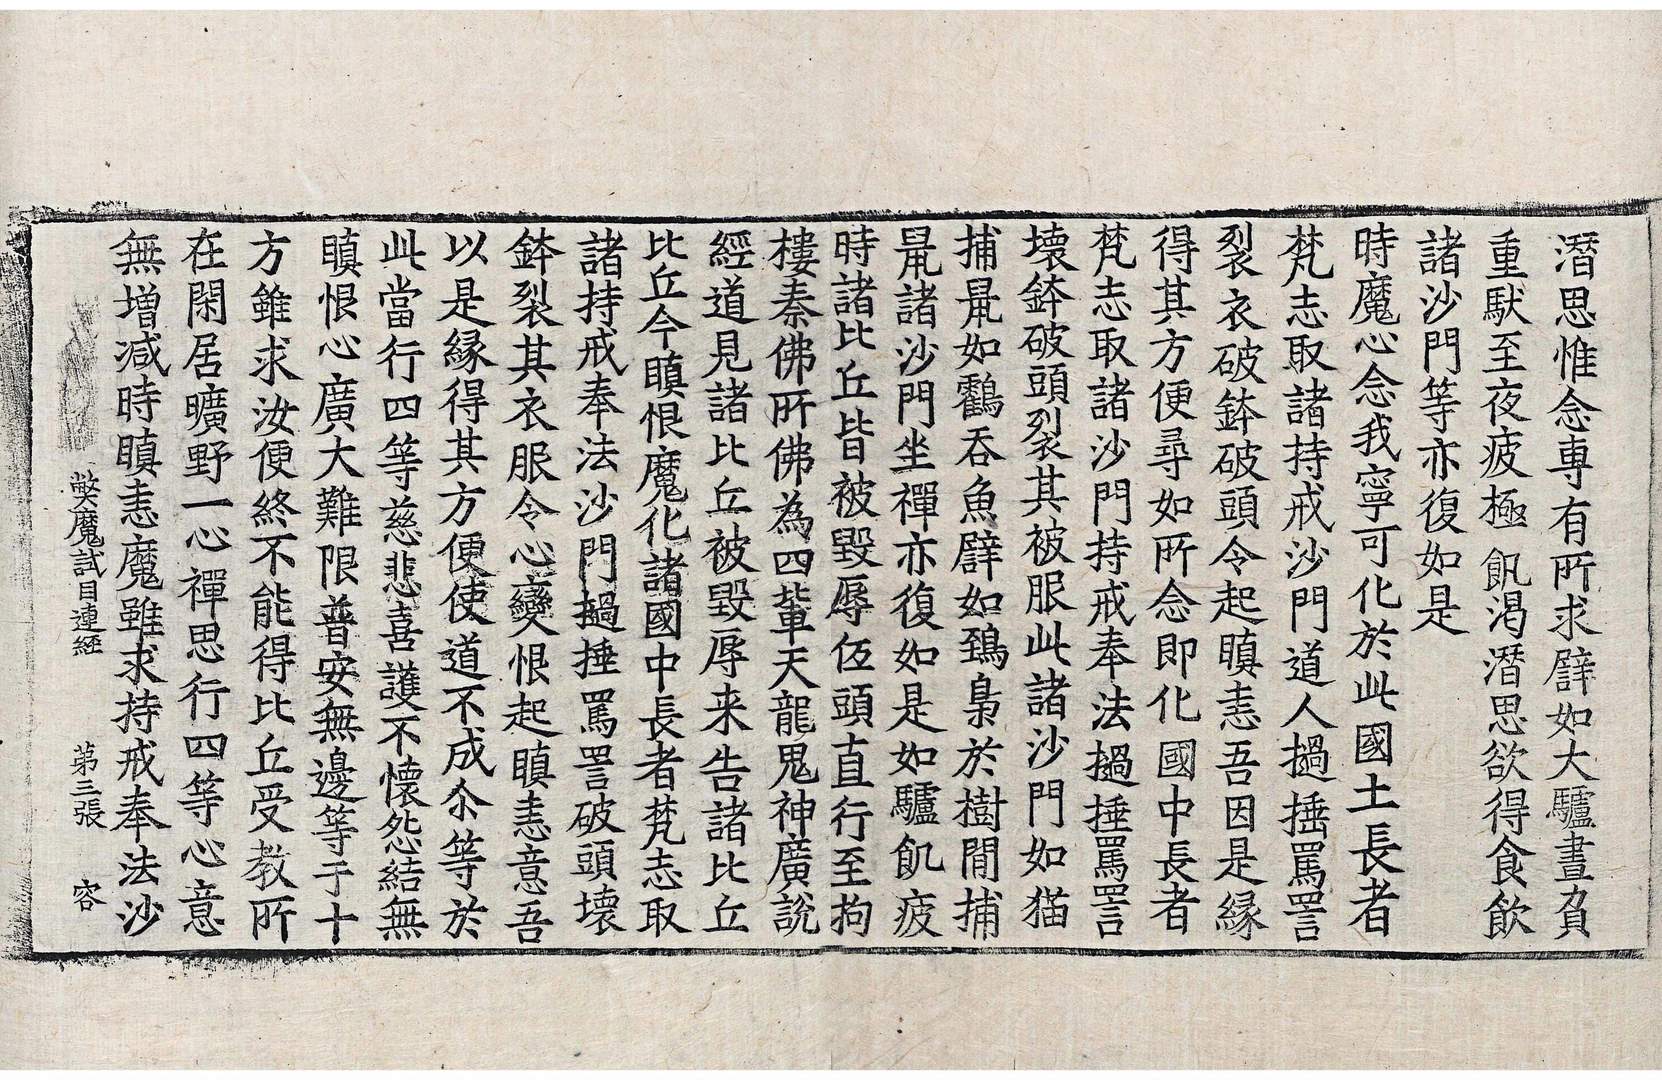 潛思惟念專有所求譬如大驢晝負
重馱至夜疲極飢渴潛思欲得食飲
諸沙門等亦復如是
時魔心念我寧可化於此國土長者
梵志取諸持戒沙門道人撾捶罵詈
裂衣破鉢破頭令起瞋恚吾因是緣
得其方便尋如所念即化國中長者
梵志取諸沙門持戒奉法撾捶罵詈
壞鉢破頭裂其被服此諸沙門如猫
捕鼠如鸛吞魚譬如鵄梟於樹間捕
鼠諸沙門坐禪亦復如是如驢飢疲
時諸比丘皆被毀辱伍頭直行至拘
樓秦佛所佛為四輩天龍鬼神廣說
經道見諸比丘被毀辱来告諸比丘
比丘今瞋恨魔化諸國中長者梵志取
諸持戒奉法沙門撾捶罵詈破頭壞
鉢裂其衣服令心變恨起瞋恚意吾
以是緣得其方便使道不成尒等於
此當行四等慈悲喜護不懷怨結無
瞋恨心廣大難限普安無邊等于十
方雖求汝便終不能得比丘受教所
在閑居曠野一心禪思行四等心意
無增減時瞋恚魔雖求持戒奉法沙
弊魔試目連經 第三張 容